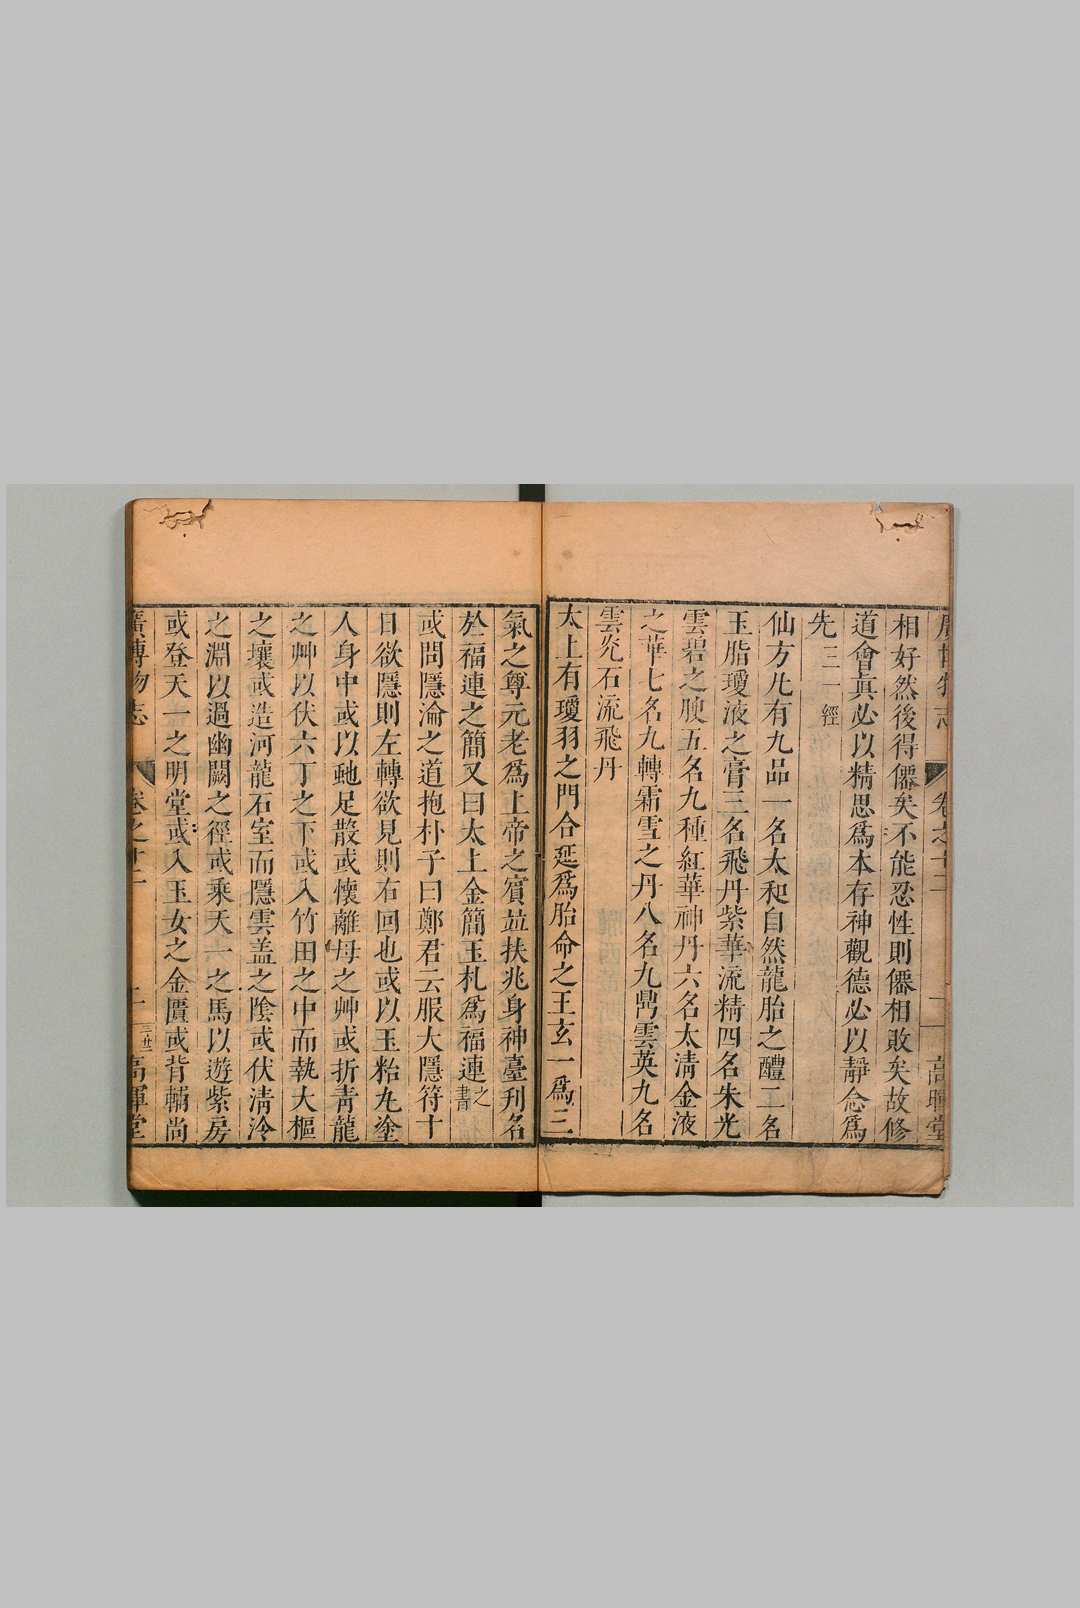 廣博物志 卷之十二 高暉堂
相好然後得僊矣不能忍性則僊相敗矣故修
道會眞必以精思爲本存神觀德必以靜念爲
先三一經
仙方凢有九品一名太和自然龍胎之醴二名
玉脂瓊液之膏三名飛丹紫華流精四名朱光
雲碧之腴五名九種紅華神丹六名太淸金液
之華七名九轉霜雪之丹八名九鼎雲英九名
雲光石流飛丹
太上有瓊羽之門合延爲胎命之王玄一爲三
氣之尊元老爲上帝之賓並扶兆身神臺刋名
於福連之簡又曰太上金簡玉札爲福連之書
或問隱淪之道抱朴子曰鄭君云服大隱符十
日欲隱則左轉欲見則右回也或以玉粭丸塗
人身中或以虵足散或懷離母之艸或折靑龍
之艸以伏六丁之下或入竹田之中而執大樞
之壤或造河龍石室而隱雲盖之陰或伏淸泠
之淵以過幽闕之徑或乘天一之馬以遊紫房
或登天一之明堂或入玉女之金匱或背輔尚
廣博物志 卷之十二 高暉堂